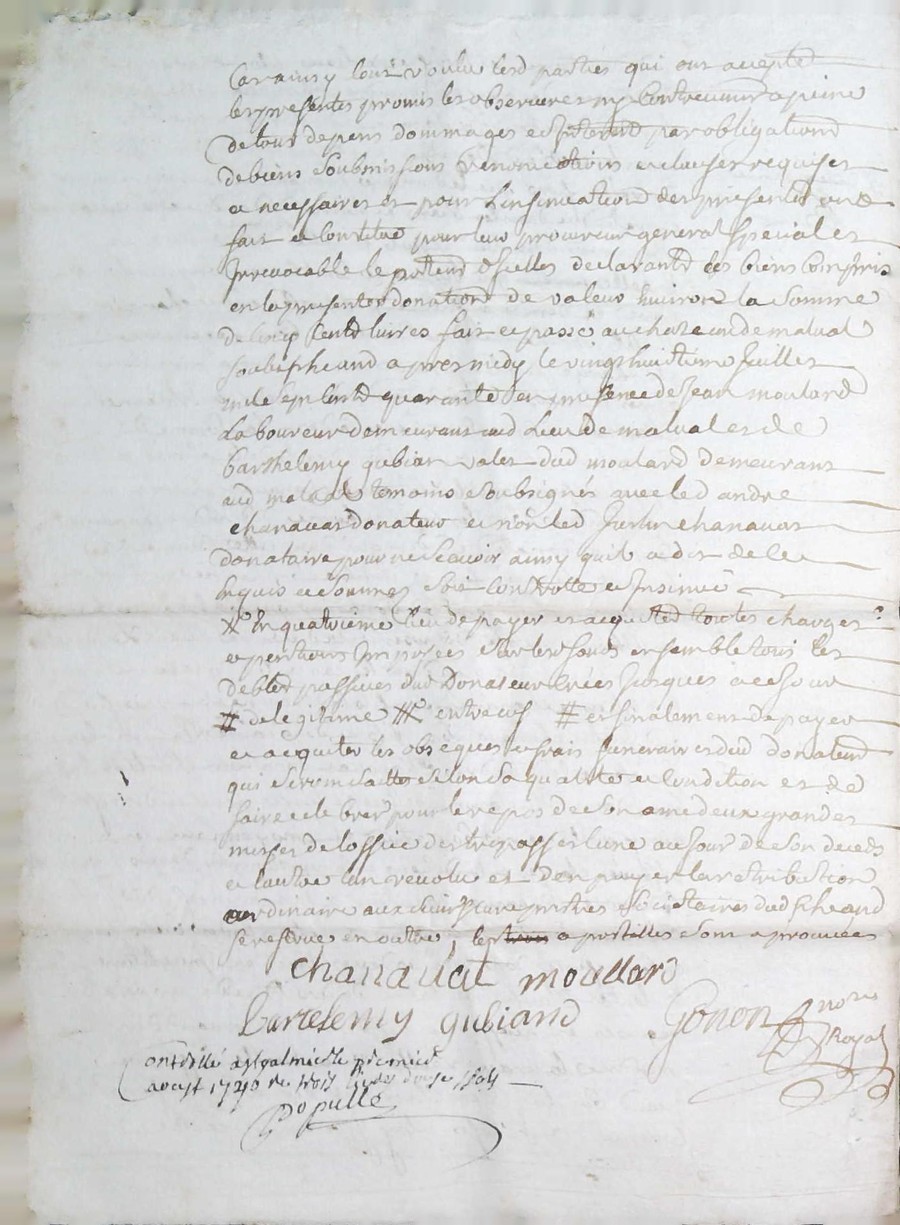 Car ainsy l'ont voulu lesd parties qui ont accepté
les presentes promis les observer et ny Contrevenir a peine
de tous depens dommages et Interest par obligations
de biens soubmissions renonciations et clauses requises
et necessaires et pour L'insinuation des presentes ont
fait et Constitué pour leur procureur general special et
Irrevocable le porteur dicelles declarants les biens Compris
en la presente donation de valeur Environ la somme
de Cinq Cents livres fait et passé au de malval
apres midy le vingt huitieme Juillet
mile sept Cents quarante en presence de Jean moulard
Laboureur demeurant aud Lieu de malval et de
barthelemy gubian valet dud moulard demeurant
aud malval temoins soubsignés avec led andre
chanavat donateur et non led Justin chanavat
donataire pour ne scavoir ainsy quil a dit de ce
Enquis et sommés soit Controllé et Insinué
En quatrieme lieu de payer et acquitter toutes charges
et pentions Imposées sur les fonds ensemble tous les
debtes passives dud Donateur Créés Jusques a ce Jour
# de legitime entre eux # et finalement de payer
et acquiter les obseques et frais funeraires dud donateur
qui seront faites selon sa qualité et Condition et de
faire celebrer pour le repos de son ame deux grandes
messes de loffice des trepassés lune au Jour de son deceds
et lautre lan revolu et den payer la retribution
ordinaire aux prestres societaires dud
se reserve en outre, les apostilles sont aprouvées
Chanavat moullard
Bartelemy gubiand Gonon nore
Royal
Controllé a st galmier le premier
aoust 1740 rec trois livres douze sols
Populle